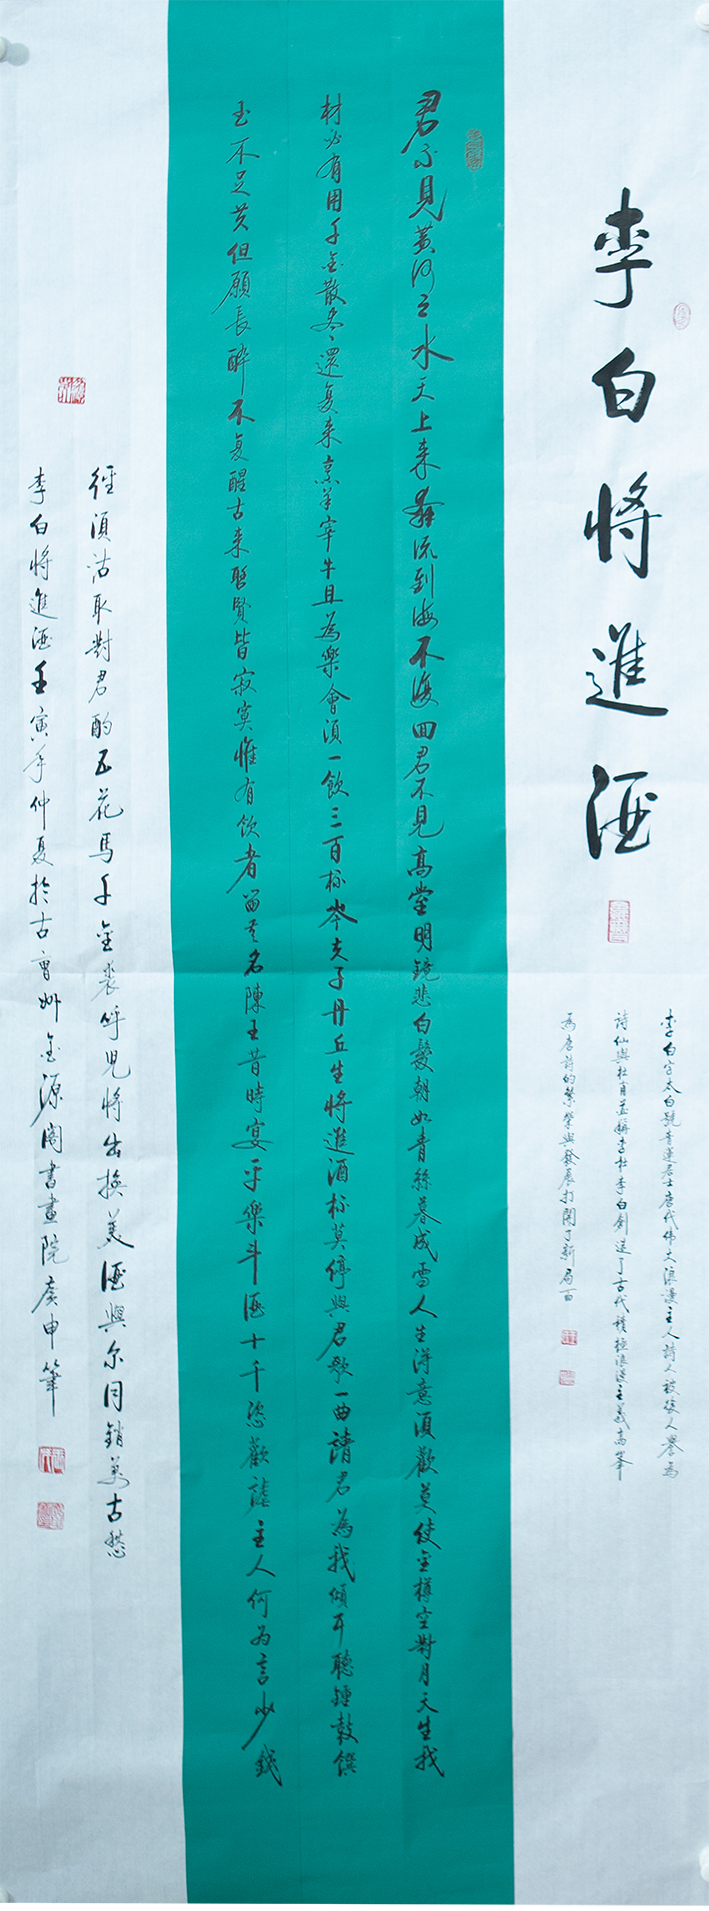 李白將進酒
李白字太白號青蓮居士唐代偉大浪漫主人詩人被後人譽為
詩仙與杜甫並稱李杜李白創造了古代積極浪漫主義高峯
為唐詩的繁榮與發展打開了新局面
君不見黃河之水天上來奔流到海不復回君不見高堂明鏡悲白髮朝如青絲暮成雪人生得意須歡莫使金樽空對月天生我
材必有用千金散盡還復來烹羊宰牛且為樂會須一飲三百杯岑夫子丹丘生將進酒杯莫停與君歌一曲請君為我傾耳聽鍾鼓饌
玉不足貴但願長醉不復醒古來聖賢皆寂寞惟有飲者留其名陳王昔時宴平樂斗酒十千恣歡謔主人何為言少錢
徑須沽取對君酌五花馬千金裘呼兒將出換美酒與尔同銷萬古愁
李白將進酒壬寅年仲夏於古曹州金源閣書畫院廣申筆